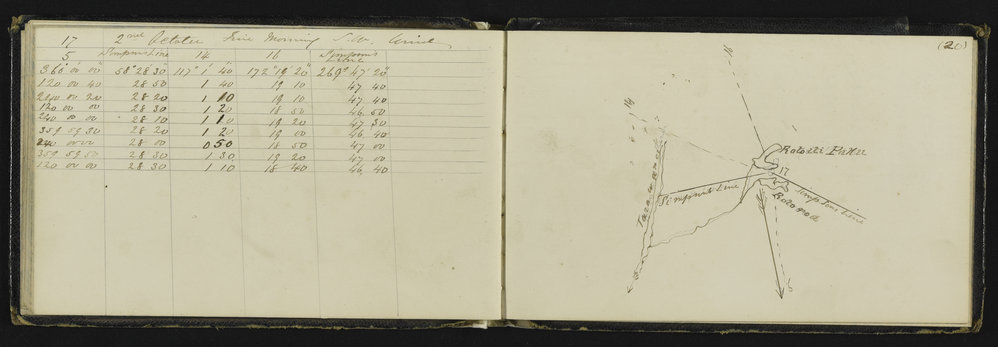 17 2nd October Fine Morning S.W. Wind
5 Simpsons Line 14 16 Simpsons Line
360° 0' 00" 58° 28' 30" 117° 1' 40" 172° 19' 20" 269° 47' 20"
120 00 40 28 50 1 40 19 10 47 40
240 00 20 28 20 1 10 19 10 47 40
120 00 00 28 30 1 20 18 50 46 50
240 00 00 28 10 1 10 19 20 47 30
359 59 30 28 20 1 20 19 00 46 40
240 00 00 28 00 0 50 18 50 47 00
359 59 50 28 30 1 30 19 20 47 00
120 00 00 28 30 1 10 18 40 46 40
(20)
16
14
Rotoiti Pattu
17
Simpsons Line
Simpsons Line
Rotorua
Tarawera
5